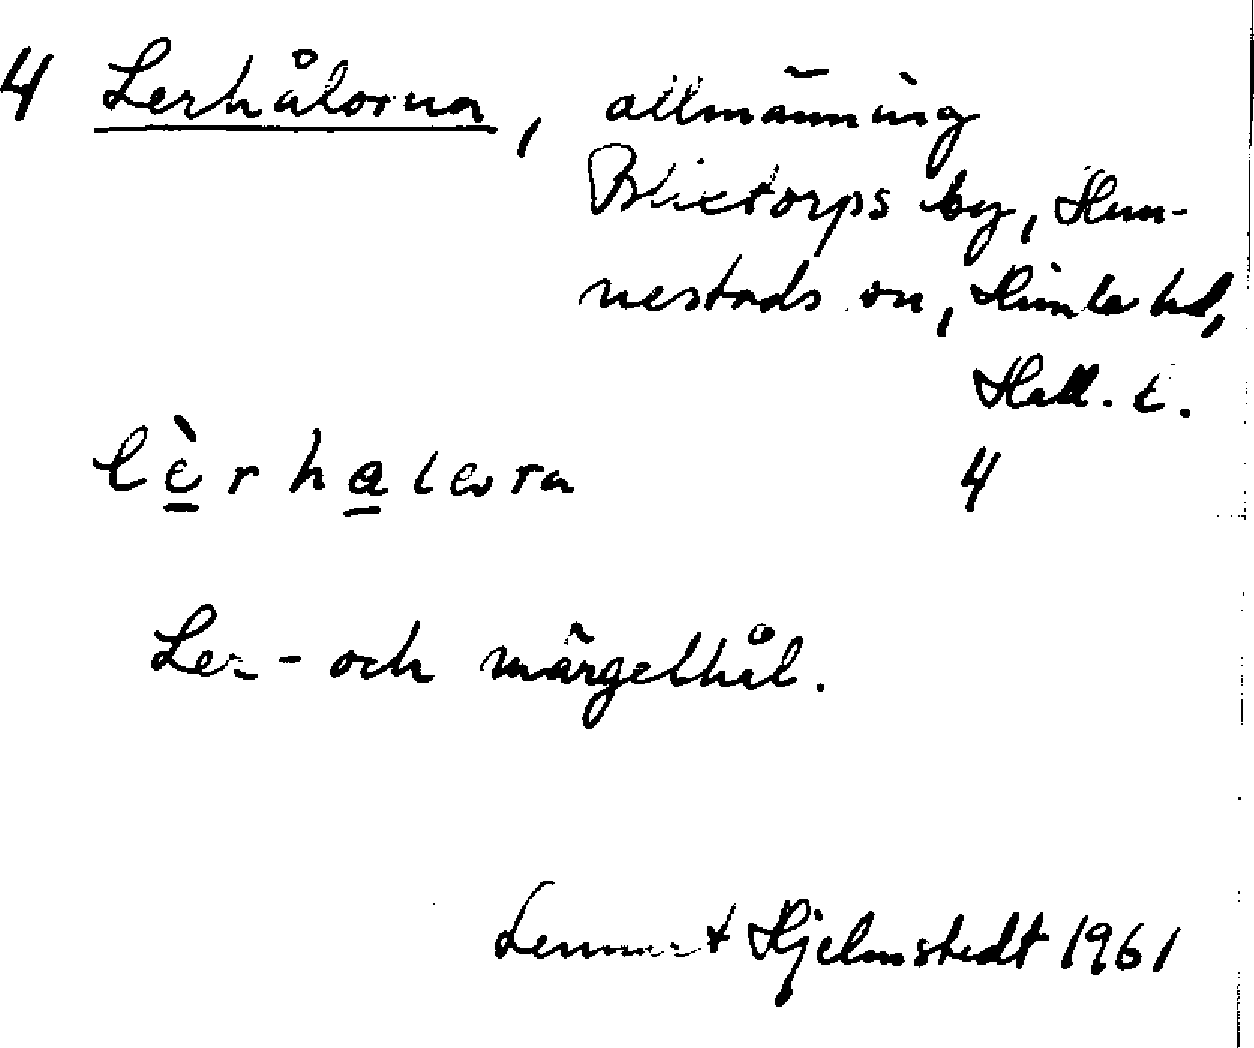 4 Lerhålorna, allmänning
Blixtorps by, Hun-
nestads sn, Himle hd,
Hall. l.
lèrhalora 4
Ler- och märgelhål.
Lennart Hjelmstedt 1961